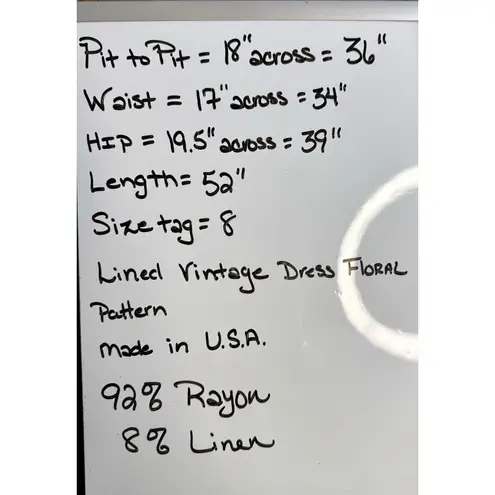 Pit to Pit = 18" across = 36"
Waist = 17" across = 34"
HIP = 19.5" across = 39"
Length = 52"
Size tag = 8
Lined Vintage Dress FLORAL
Pattern
made in U.S.A.
92% Rayon
8% Linen